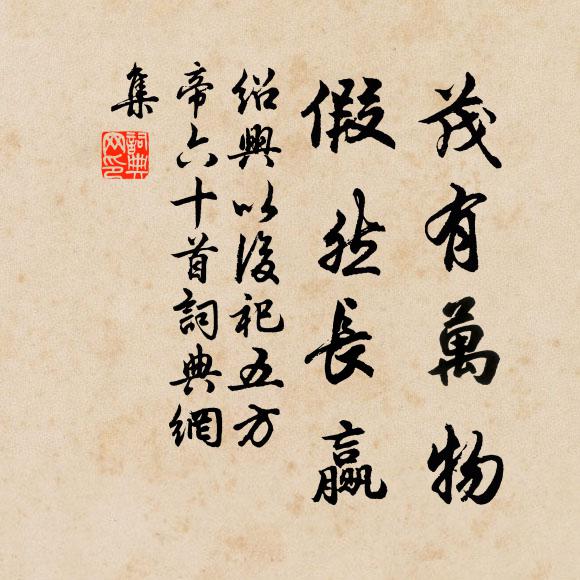 茂有萬物
假然長贏
紹興以後祀五方
帝六十首詞典網
集
詞典網印